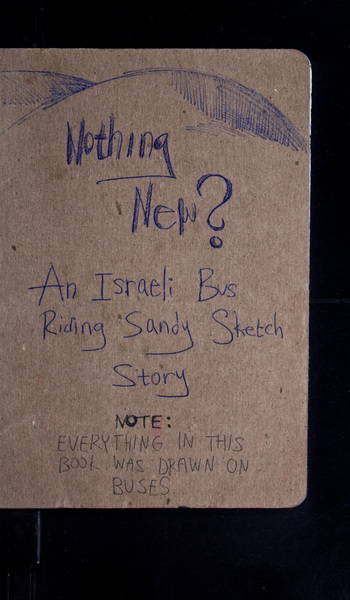 Nothing
New?
An Israeli Bus
Riding Sandy Sketch
Story
NOTE:
EVERYTHING IN THIS
BOOK WAS DRAWN ON
BUSES